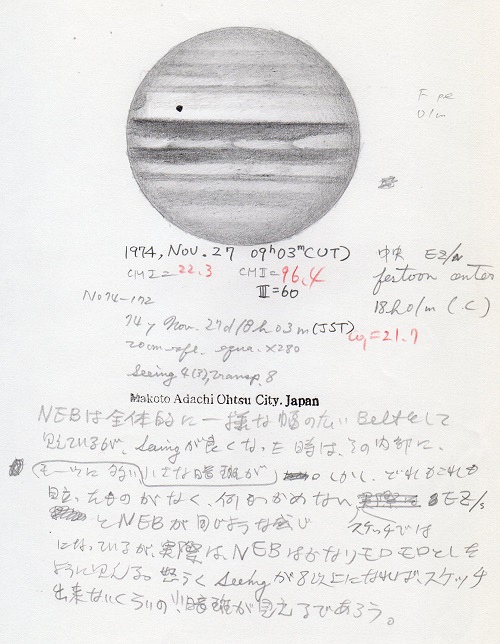 1974, Nov. 27 09h03m(UT)
CM I = 22.3 CM II = 96.4
III = 60
中央 EZ/n
festoon center
18h01m (.C)
ω1=21.7
No 74-172
74y Nov. 27d 18h03m (JST)
20cm refl. equa. ×280
Seeing 4(3), Transp. 8
Makoto Adachi Ohtsu City, Japan
NEBは全体的に一様な幅の Beltとして
見えているが、Seeingが良くなった時は、その内部に、
小さな暗斑が しかし、どれもこれも
目立ったものがなく、何 EZ/s
とNEBが同じような感じ スケッチでは
になっているが、実際は、NEBはかなりモロモロとした
ように見える。恐らくSeeingが8以上になれば、スケッチ
出来ないくらいの小暗斑が見えるであろう。